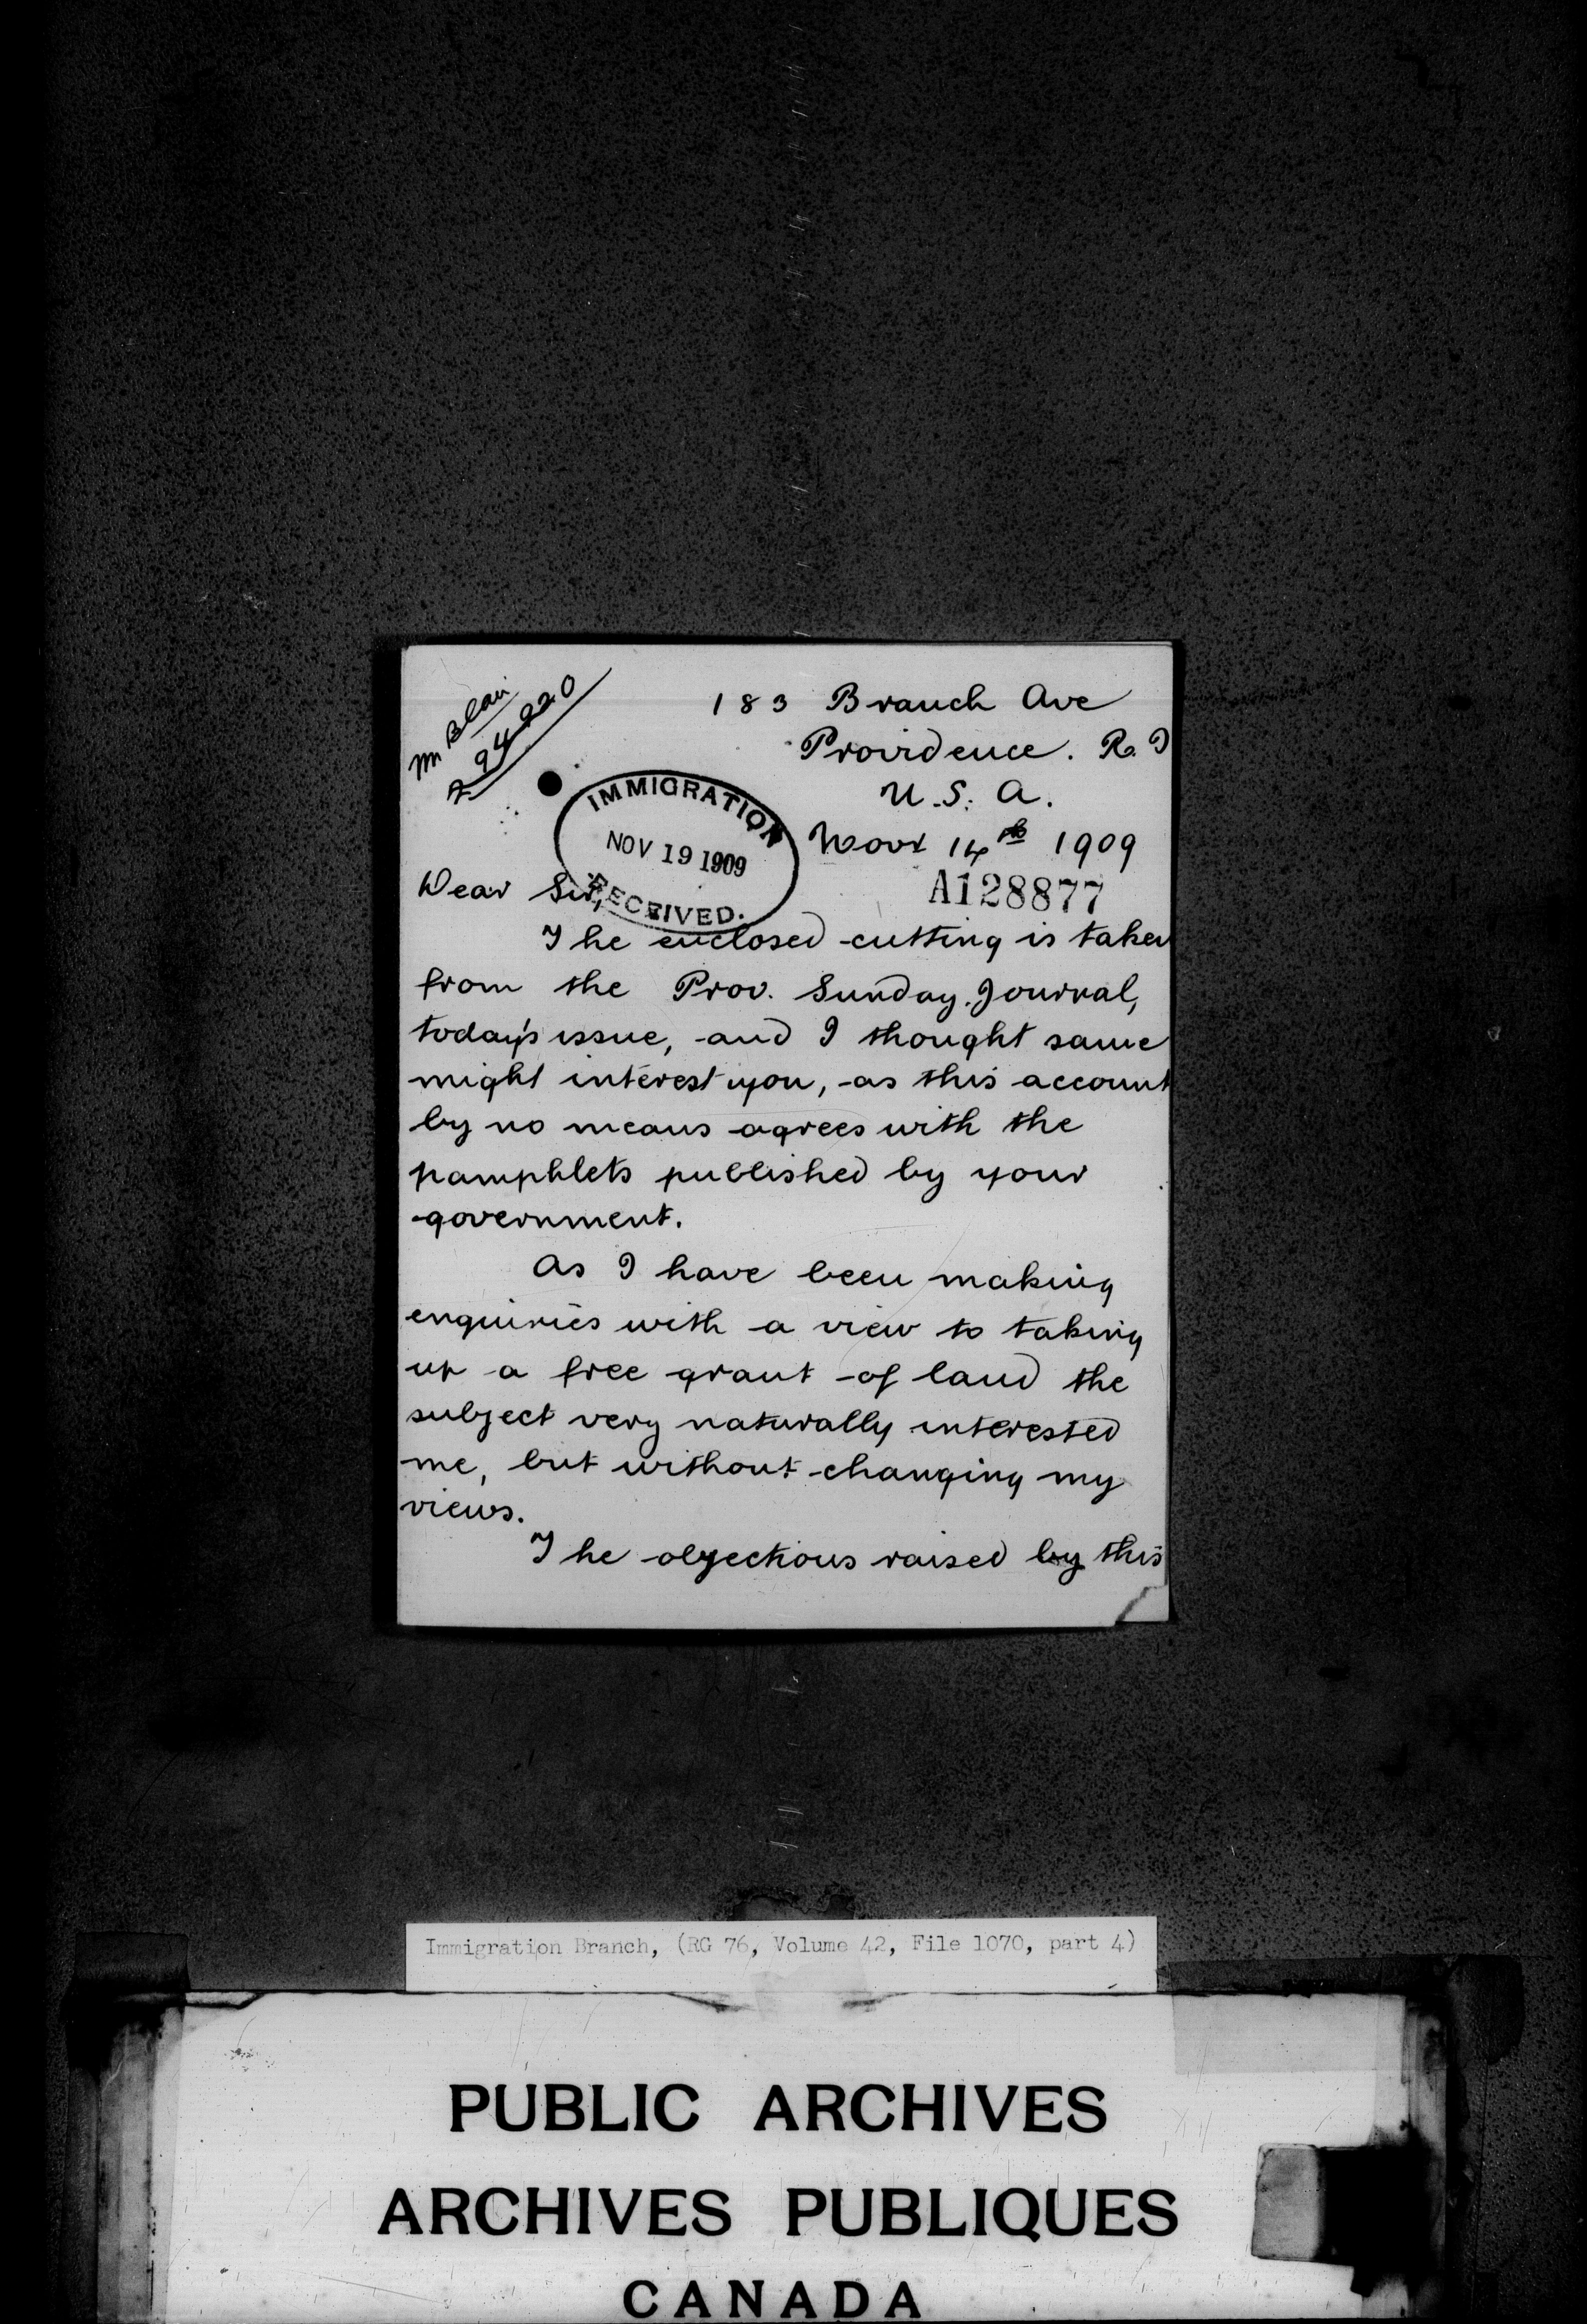 Mr Blair
294220
183 Branch Ave
Providence. R. I
U.S. A.
IMMIGRATION
NOV 19 1909
RECEIVED.
Novr 14th 1909
A128877
Dear Sir,
The enclosed cutting is taken
from the Prov. Sunday Journal,
today's issue, and I thought same
might interest you, as this account
by no means agrees with the
pamphlets published by your
government.
As I have been making
enquiries with a view to taking
up a free grant of land the
subject very naturally interested
me, but without changing my
views.
The objections raised by this
Immigration Branch, (RG 76, Volume 42, File 1070, part 4)
PUBLIC ARCHIVES
ARCHIVES PUBLIQUES
CANADA